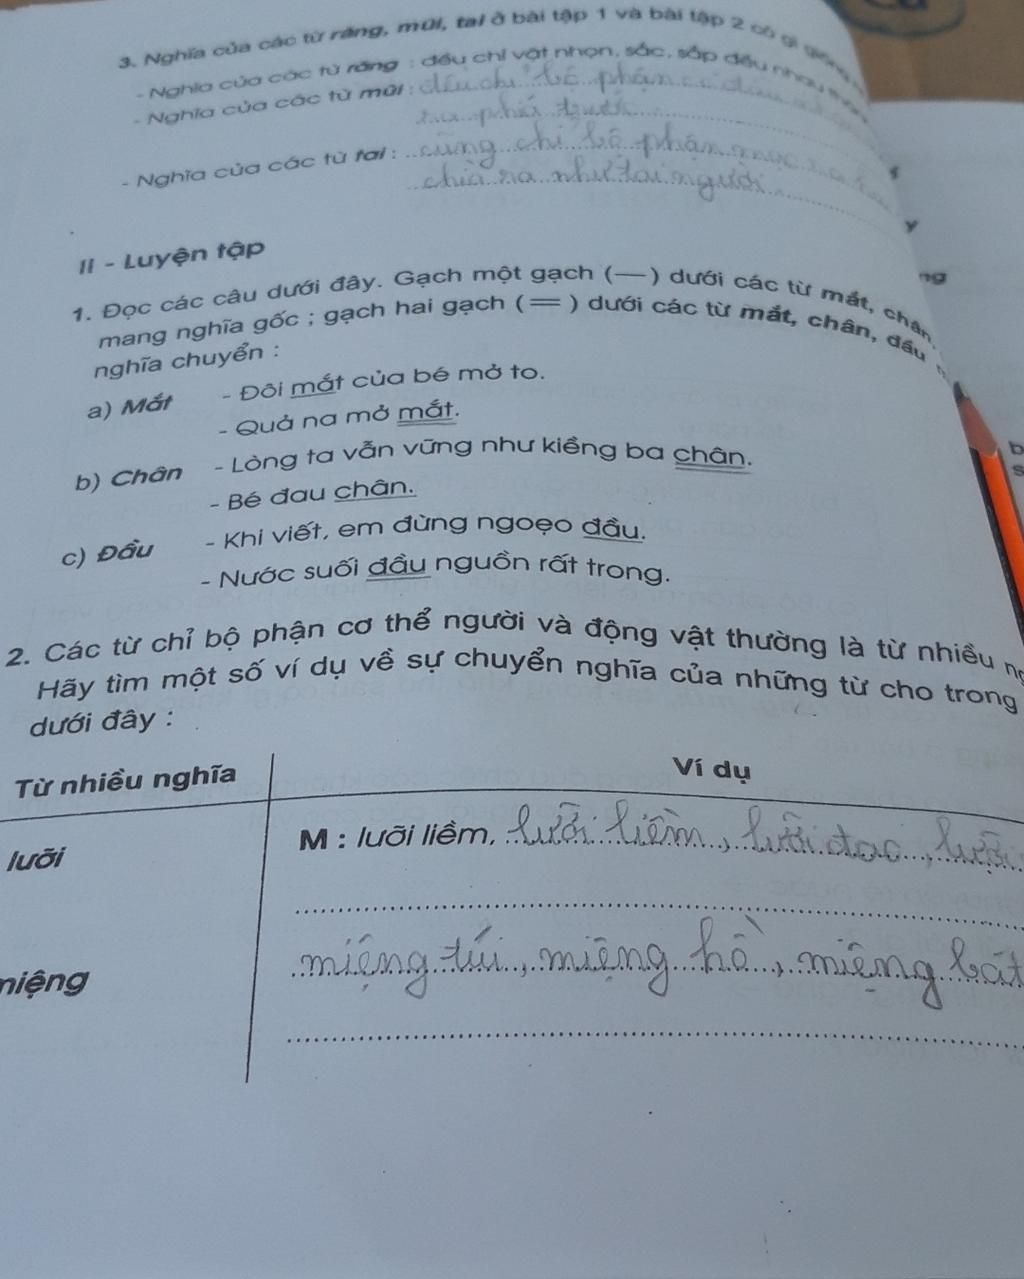 3. Nghĩa của các từ răng, mũi, tai ở bài tập 1 và bài tập 2 có gì giống
- Nghĩa của các từ răng : đều chỉ vật nhọn, sắc, sắp đều nhau
- Nghĩa của các từ mũi : đều chỉ bộ phận có đầu
ra phía trước
- Nghĩa của các từ tai : cũng chỉ bộ phận mọc
chìa ra như tai người
II - Luyện tập
1. Đọc các câu dưới đây. Gạch một gạch (—) dưới các từ mắt, chân,
mang nghĩa gốc ; gạch hai gạch (=) dưới các từ mắt, chân, đầu
nghĩa chuyển :
a) Mắt - Đôi mắt của bé mở to.
- Quả na mở mắt.
b) Chân - Lòng ta vẫn vững như kiềng ba chân.
- Bé đau chân.
c) Đầu - Khi viết, em đừng ngoẹo đầu.
- Nước suối đầu nguồn rất trong.
2. Các từ chỉ bộ phận cơ thể người và động vật thường là từ nhiều
Hãy tìm một số ví dụ về sự chuyển nghĩa của những từ cho trong
dưới đây :
Từ nhiều nghĩa Ví dụ
lưỡi M : lưỡi liềm, lưỡi liềm, lưỡi dao, lưỡi
miệng miệng túi, miệng hồ, miệng bát